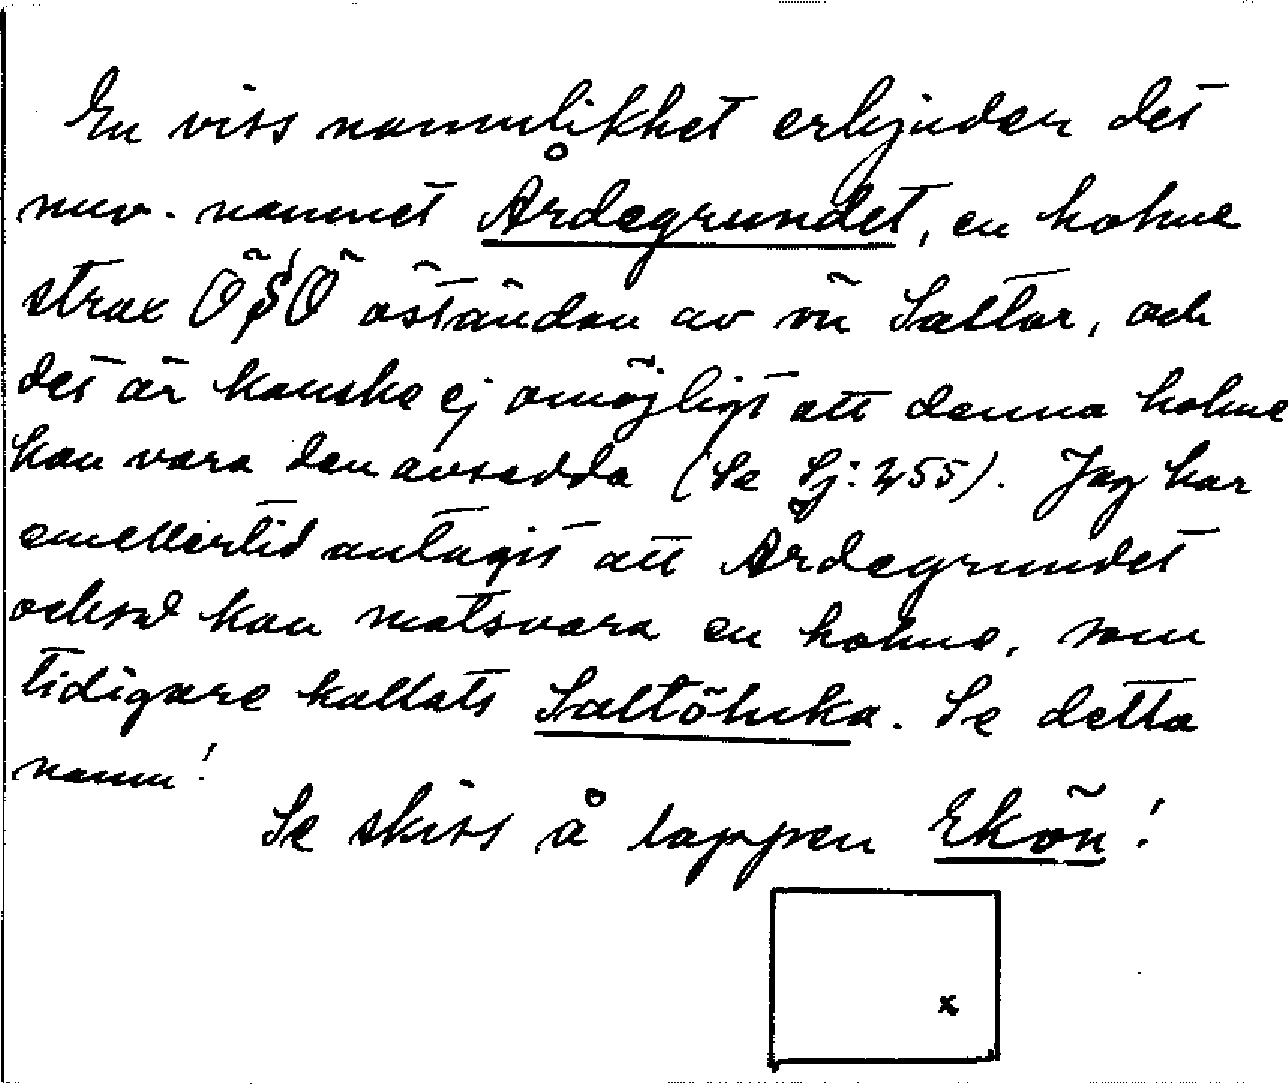 En viss namnlikhet erbjuder det
nuv. namnet Årdegrundet, en holme
strax ÖSÖ östanden av ön Saltor, och
det är kanske ej omöjligt att denna holme
kan vara den avsedda (Se Sj: 255). Jag har
emellertid antagit att Årdegrundet
också kan motsvara en holme, som
tidigare kallats Saltöluka. Se detta
namn!
Se skiss å lappen Ekön!
x